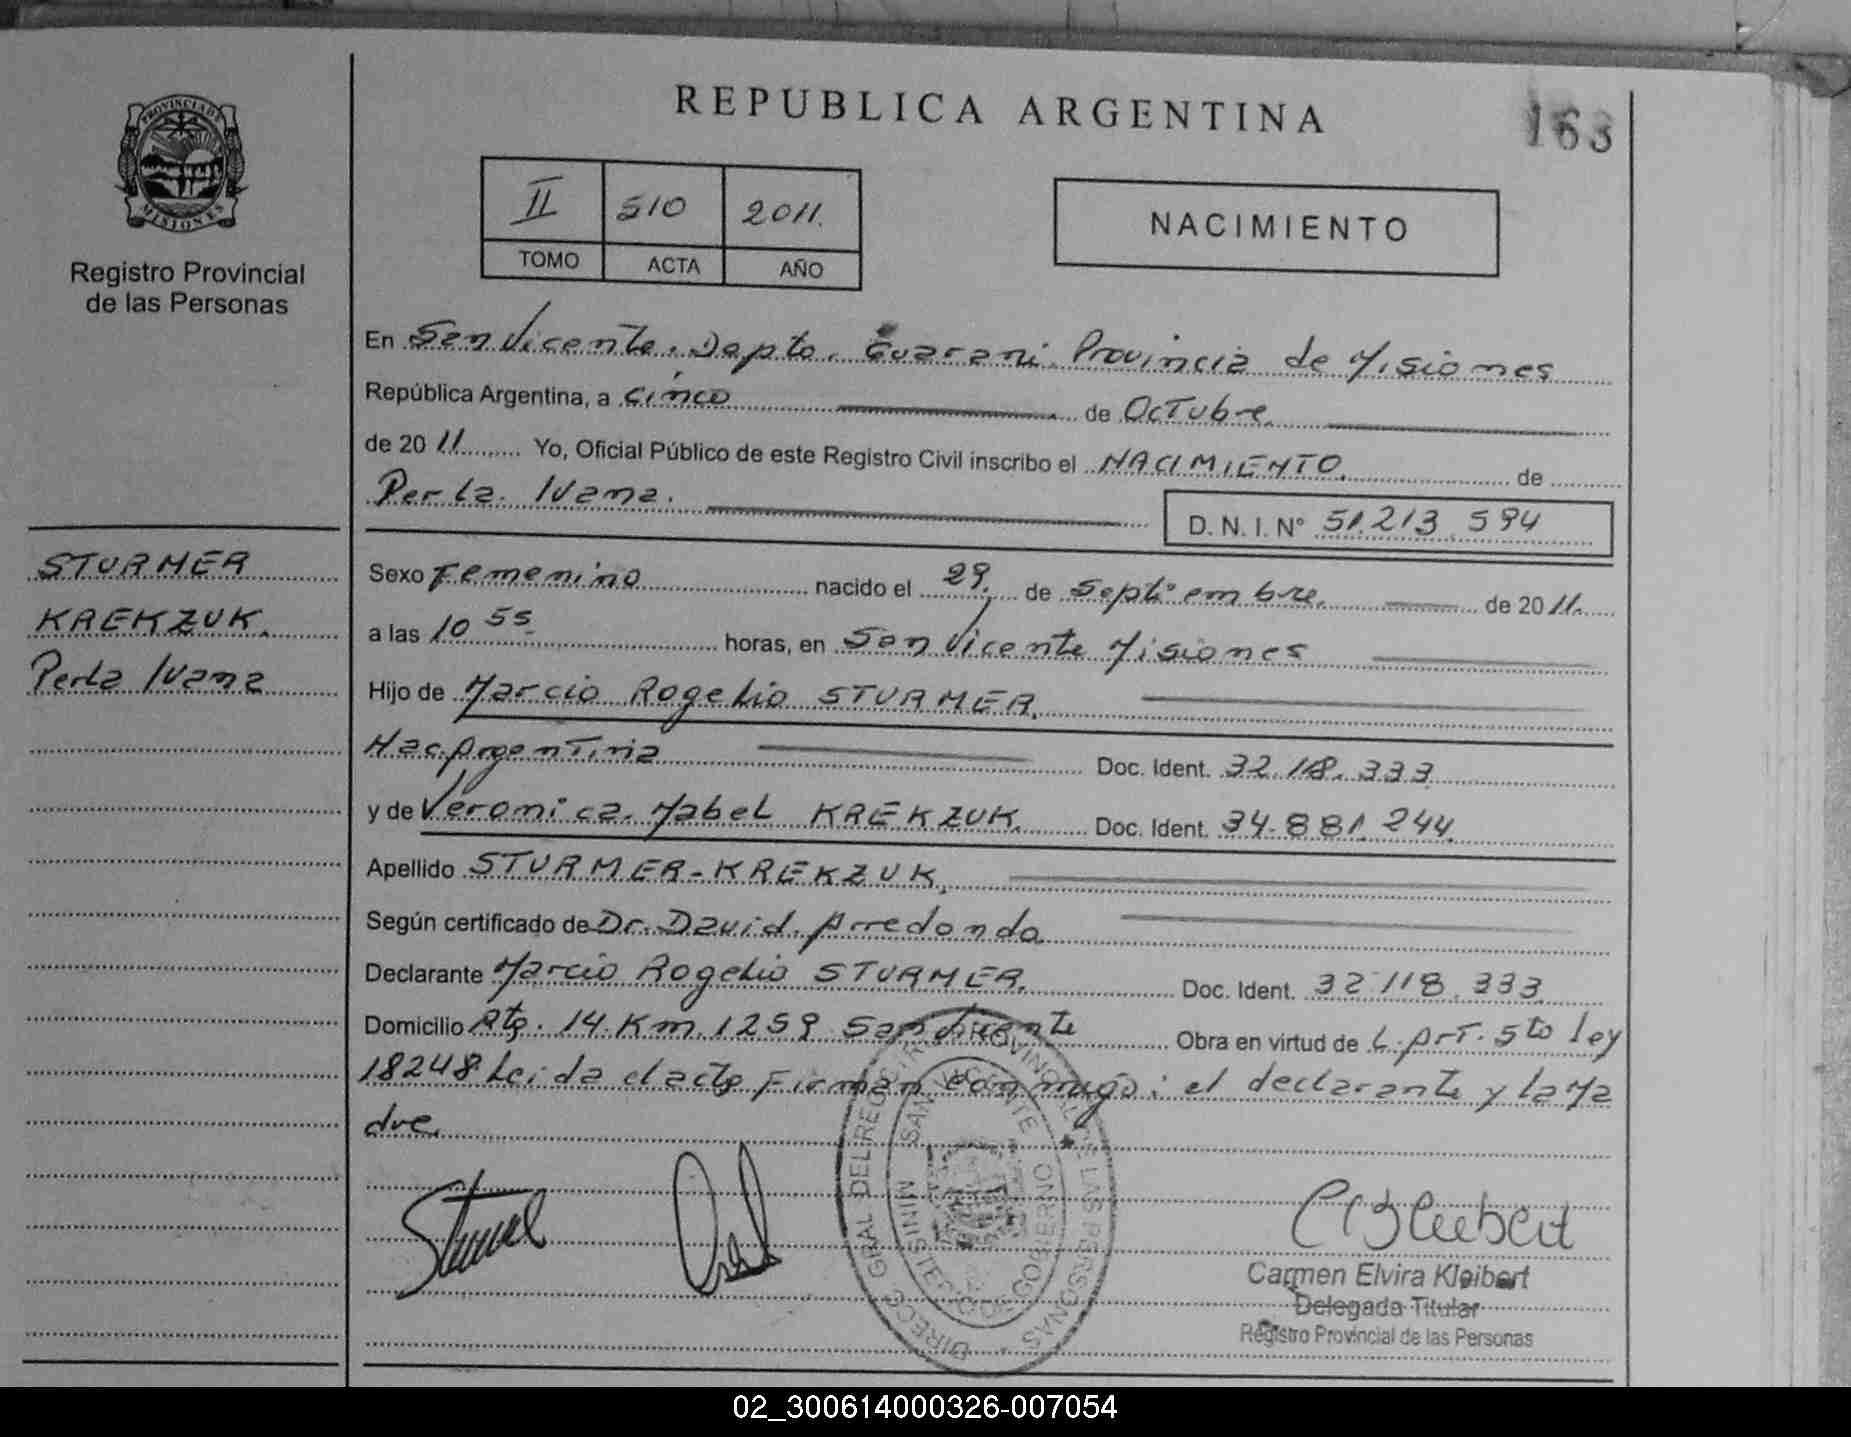 REPUBLICA ARGENTINA
163
PROVINCIA DE
MISIONES
Registro Provincial
de las Personas
II 510 2011.
TOMO ACTA AÑO
NACIMIENTO
En San Vicente. Dapto. Guarani. Provincia de Misiones
República Argentina, a cinco de Octubre.
de 20 11 Yo, Oficial Público de este Registro Civil inscribo el NACIMIENTO. de
Perla. Ivana.
D. N. I. N° 51.213.594
STURMER
KREKZUK.
Perla Ivana
Sexo Femenino nacido el 29. de Septiembre. de 20 11.
a las 10 55 horas, en San Vicente Misiones
Hijo de Marcio Rogelio STURMER.
Nac. Argentina Doc. Ident. 32.118.333
y de Veronica. Mabel KREKZUK. Doc. Ident. 34.881.244
Apellido STURMER-KREKZUK.
Según certificado de Dr. David. Arredondo.
Declarante Marcio Rogelio STURMER. Doc. Ident. 32.118.333
Domicilio Rta. 14. Km. 1259 San Vicente Obra en virtud de L. Art. 5to ley
18248. Leida el acta Firman conmigo: el declarante y la Ma
dre.
DIRECC. GRAL. DEL REGISTRO PROVINCIAL DE LAS PERSONAS
SAN VICENTE
MINISTERIO DE GOBIERNO
Carmen Elvira Kleibert
Delegada Titular
Registro Provincial de las Personas
02_300614000326-007054